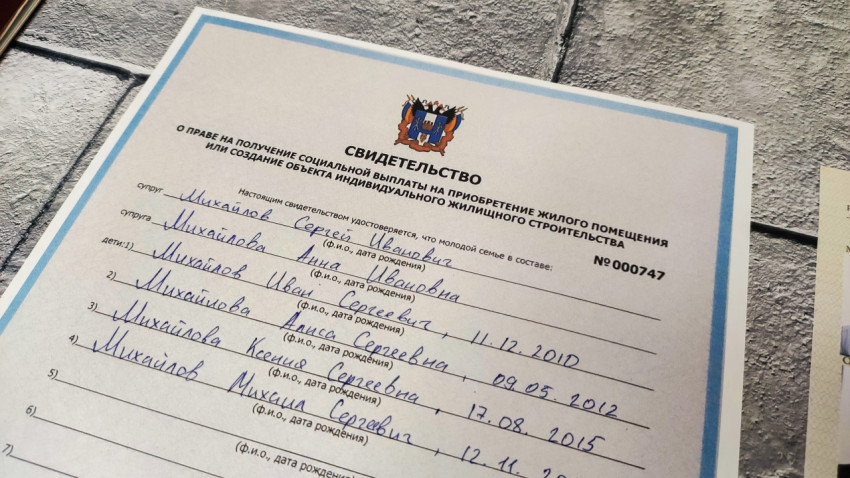 СВИДЕТЕЛЬСТВО
О ПРАВЕ НА ПОЛУЧЕНИЕ СОЦИАЛЬНОЙ ВЫПЛАТЫ НА ПРИОБРЕТЕНИЕ ЖИЛОГО ПОМЕЩЕНИЯ
ИЛИ СОЗДАНИЕ ОБЪЕКТА ИНДИВИДУАЛЬНОГО ЖИЛИЩНОГО СТРОИТЕЛЬСТВА
№ 000747
Настоящим свидетельством удостоверяется, что молодой семье в составе:
супруг Михайлов Сергей Иванович
(ф.и.о., дата рождения)
супруга Михайлова Анна Ивановна
(ф.и.о., дата рождения)
дети:1) Михайлов Иван Сергеевич, 11.12.2010
(ф.и.о., дата рождения)
2) Михайлова Алиса Сергеевна, 09.05.2012
(ф.и.о., дата рождения)
3) Михайлова Ксения Сергеевна, 17.08.2015
(ф.и.о., дата рождения)
4) Михайлов Михаил Сергеевич, 12.11.
(ф.и.о., дата рождения)
5)
(ф.и.о., дата рождения)
6)
7)